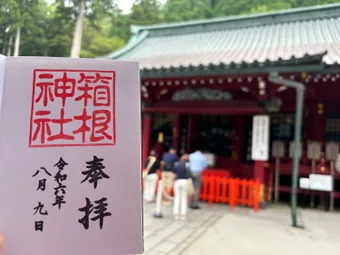 箱根
神社
奉拝
令和六年
八月九日